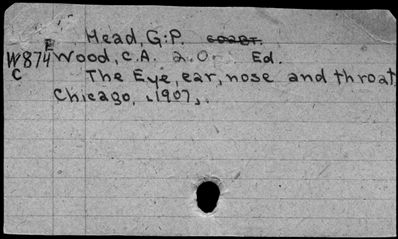 Head, G.P.
E
W874 Wood, C.A. Ed.
C The Eye, ear, nose and throat
Chicago, [1907].